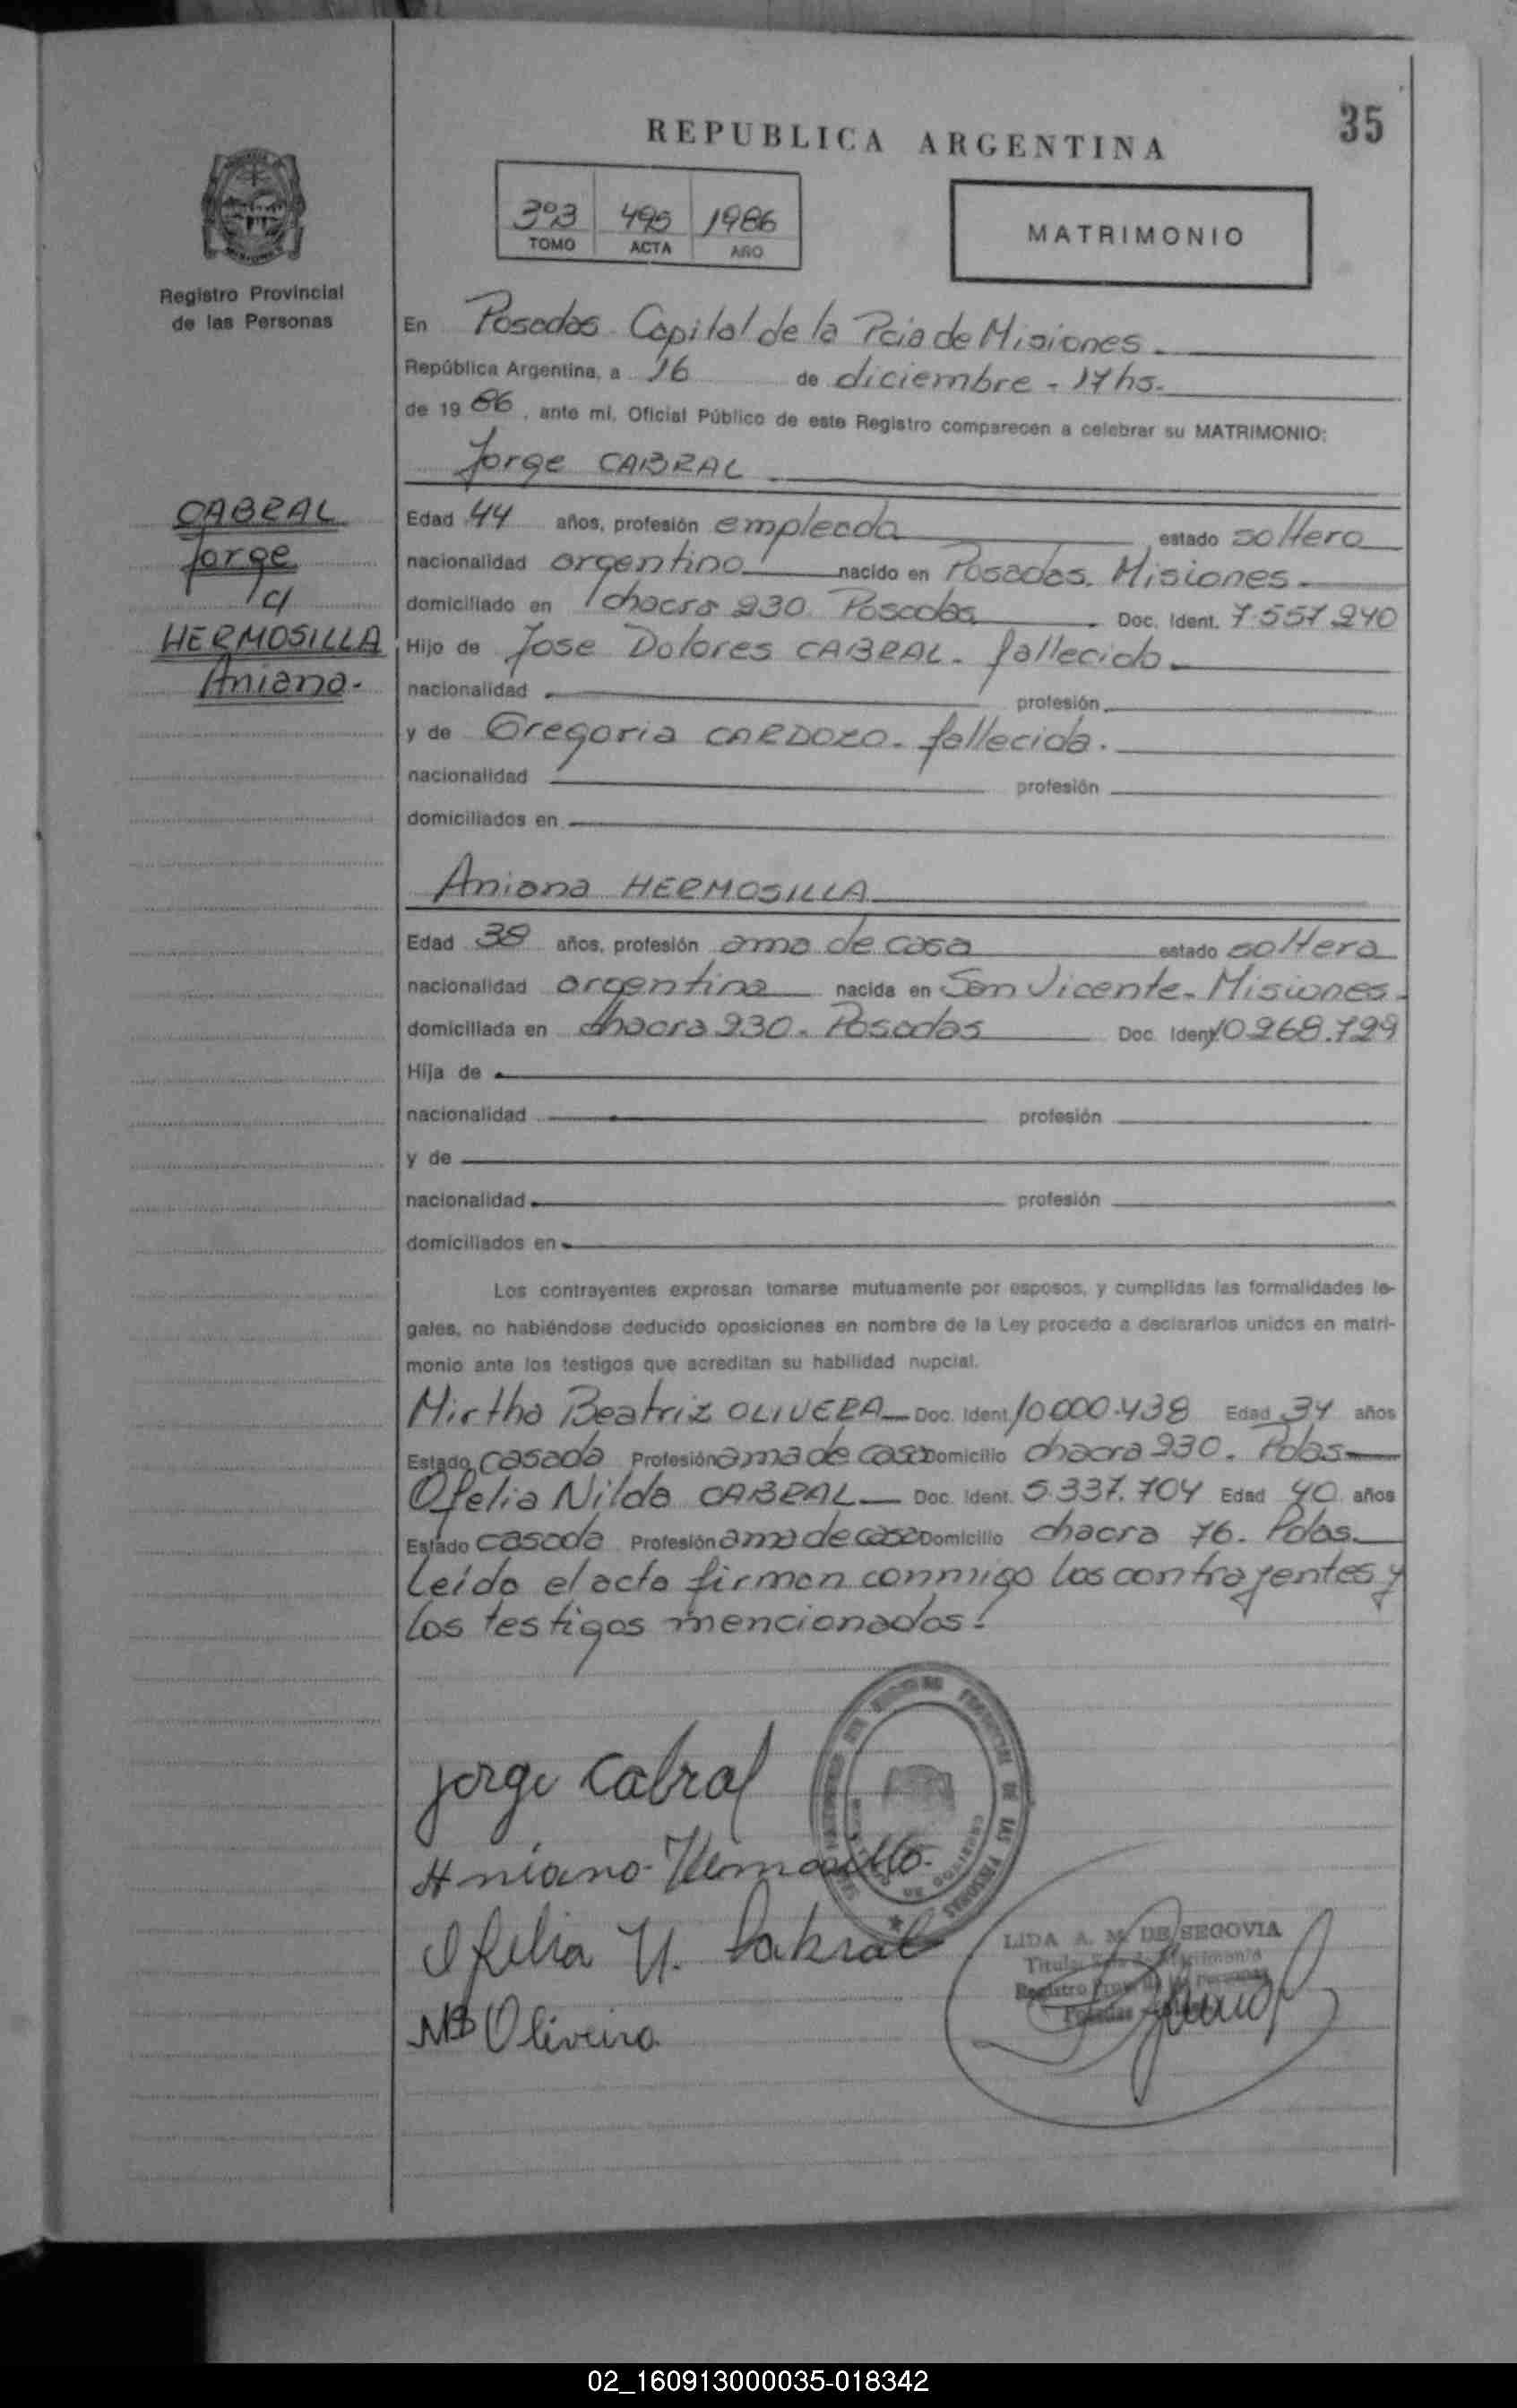 35
REPUBLICA ARGENTINA
3º3 495 1986
TOMO ACTA AÑO
MATRIMONIO
Registro Provincial
de las Personas
En Posadas Capital de la Pcia de Misiones.
República Argentina, a 16 de diciembre - 17 hs.
de 19 86, ante mí, Oficial Público de este Registro comparecen a celebrar su MATRIMONIO:
Jorge CABRAL
CABRAL
Jorge
c/
HERMOSILLA
Aniana.
Edad 44 años, profesión empleado estado soltero
nacionalidad argentino nacido en Posadas. Misiones.
domiciliado en chacra 230. Posadas Doc. Ident. 7.557.240
Hijo de Jose Dolores CABRAL. fallecido.
nacionalidad profesión
y de Gregoria CARDOZO. fallecida.
nacionalidad profesión
domiciliados en
Aniana HERMOSILLA
Edad 38 años, profesión ama de casa estado soltera
nacionalidad argentina nacida en San Vicente. Misiones.
domiciliada en chacra 230. Posadas Doc. Ident. 10.268.729
Hija de
nacionalidad profesión
y de
nacionalidad profesión
domiciliados en
Los contrayentes expresan tomarse mutuamente por esposos, y cumplidas las formalidades le-
gales, no habiéndose deducido oposiciones en nombre de la Ley procedo a declararlos unidos en matri-
monio ante los testigos que acreditan su habilidad nupcial.
Mirtha Beatriz OLIVERA Doc. Ident. 10.000.438 Edad 34 años
Estado casada Profesión ama de casa Domicilio chacra 230. Pdas
Ofelia Nilda CABRAL Doc. Ident. 5.337.704 Edad 40 años
Estado casada Profesión ama de casa Domicilio chacra 76. Pdas.
Leída el acta firman conmigo los contrayentes y
los testigos mencionados.
Jorge Cabral
Aniana Hermosilla.
Ofelia N. Cabral
MB Oliveira
LIDA A. M. DE SEGOVIA
02_160913000035-018342